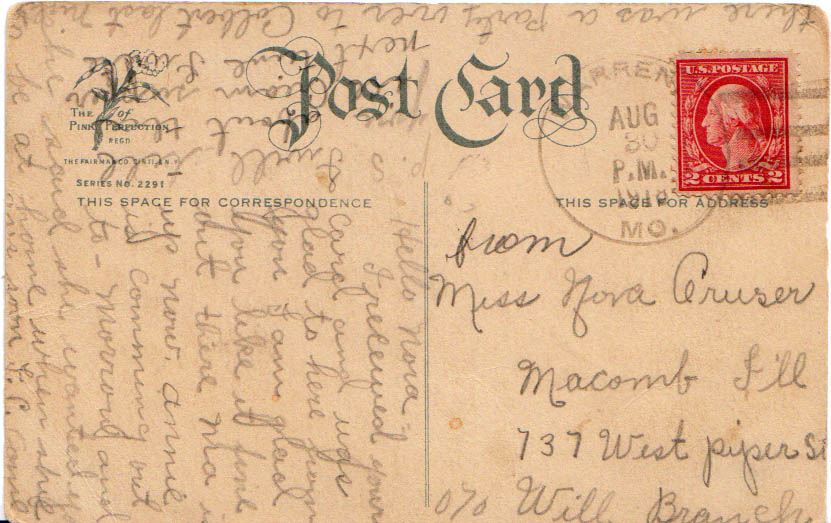 Post Card
The Pink of Perfection
REGD
THE FAIRMAN CO. CINTI., & N.Y.
SERIES No. 2291
THIS SPACE FOR CORRESPONDENCE
THIS SPACE FOR ADDRESS
WARREN
AUG
30
P.M.
1918
MO.
U.S. POSTAGE
2 CENTS 2
from
Miss Nova Cruser
Macomb Ill
737 West piper St
c/o Will Branch
Hello Nova =
I received your
card and was
glad to here from
you I am glad
you like it fine
out there Ma is
up now. Annie
is comming out
to-morrow and
she said she wanted
be at home when she
come
there was a party over to Colbert last
next time
I will
about the